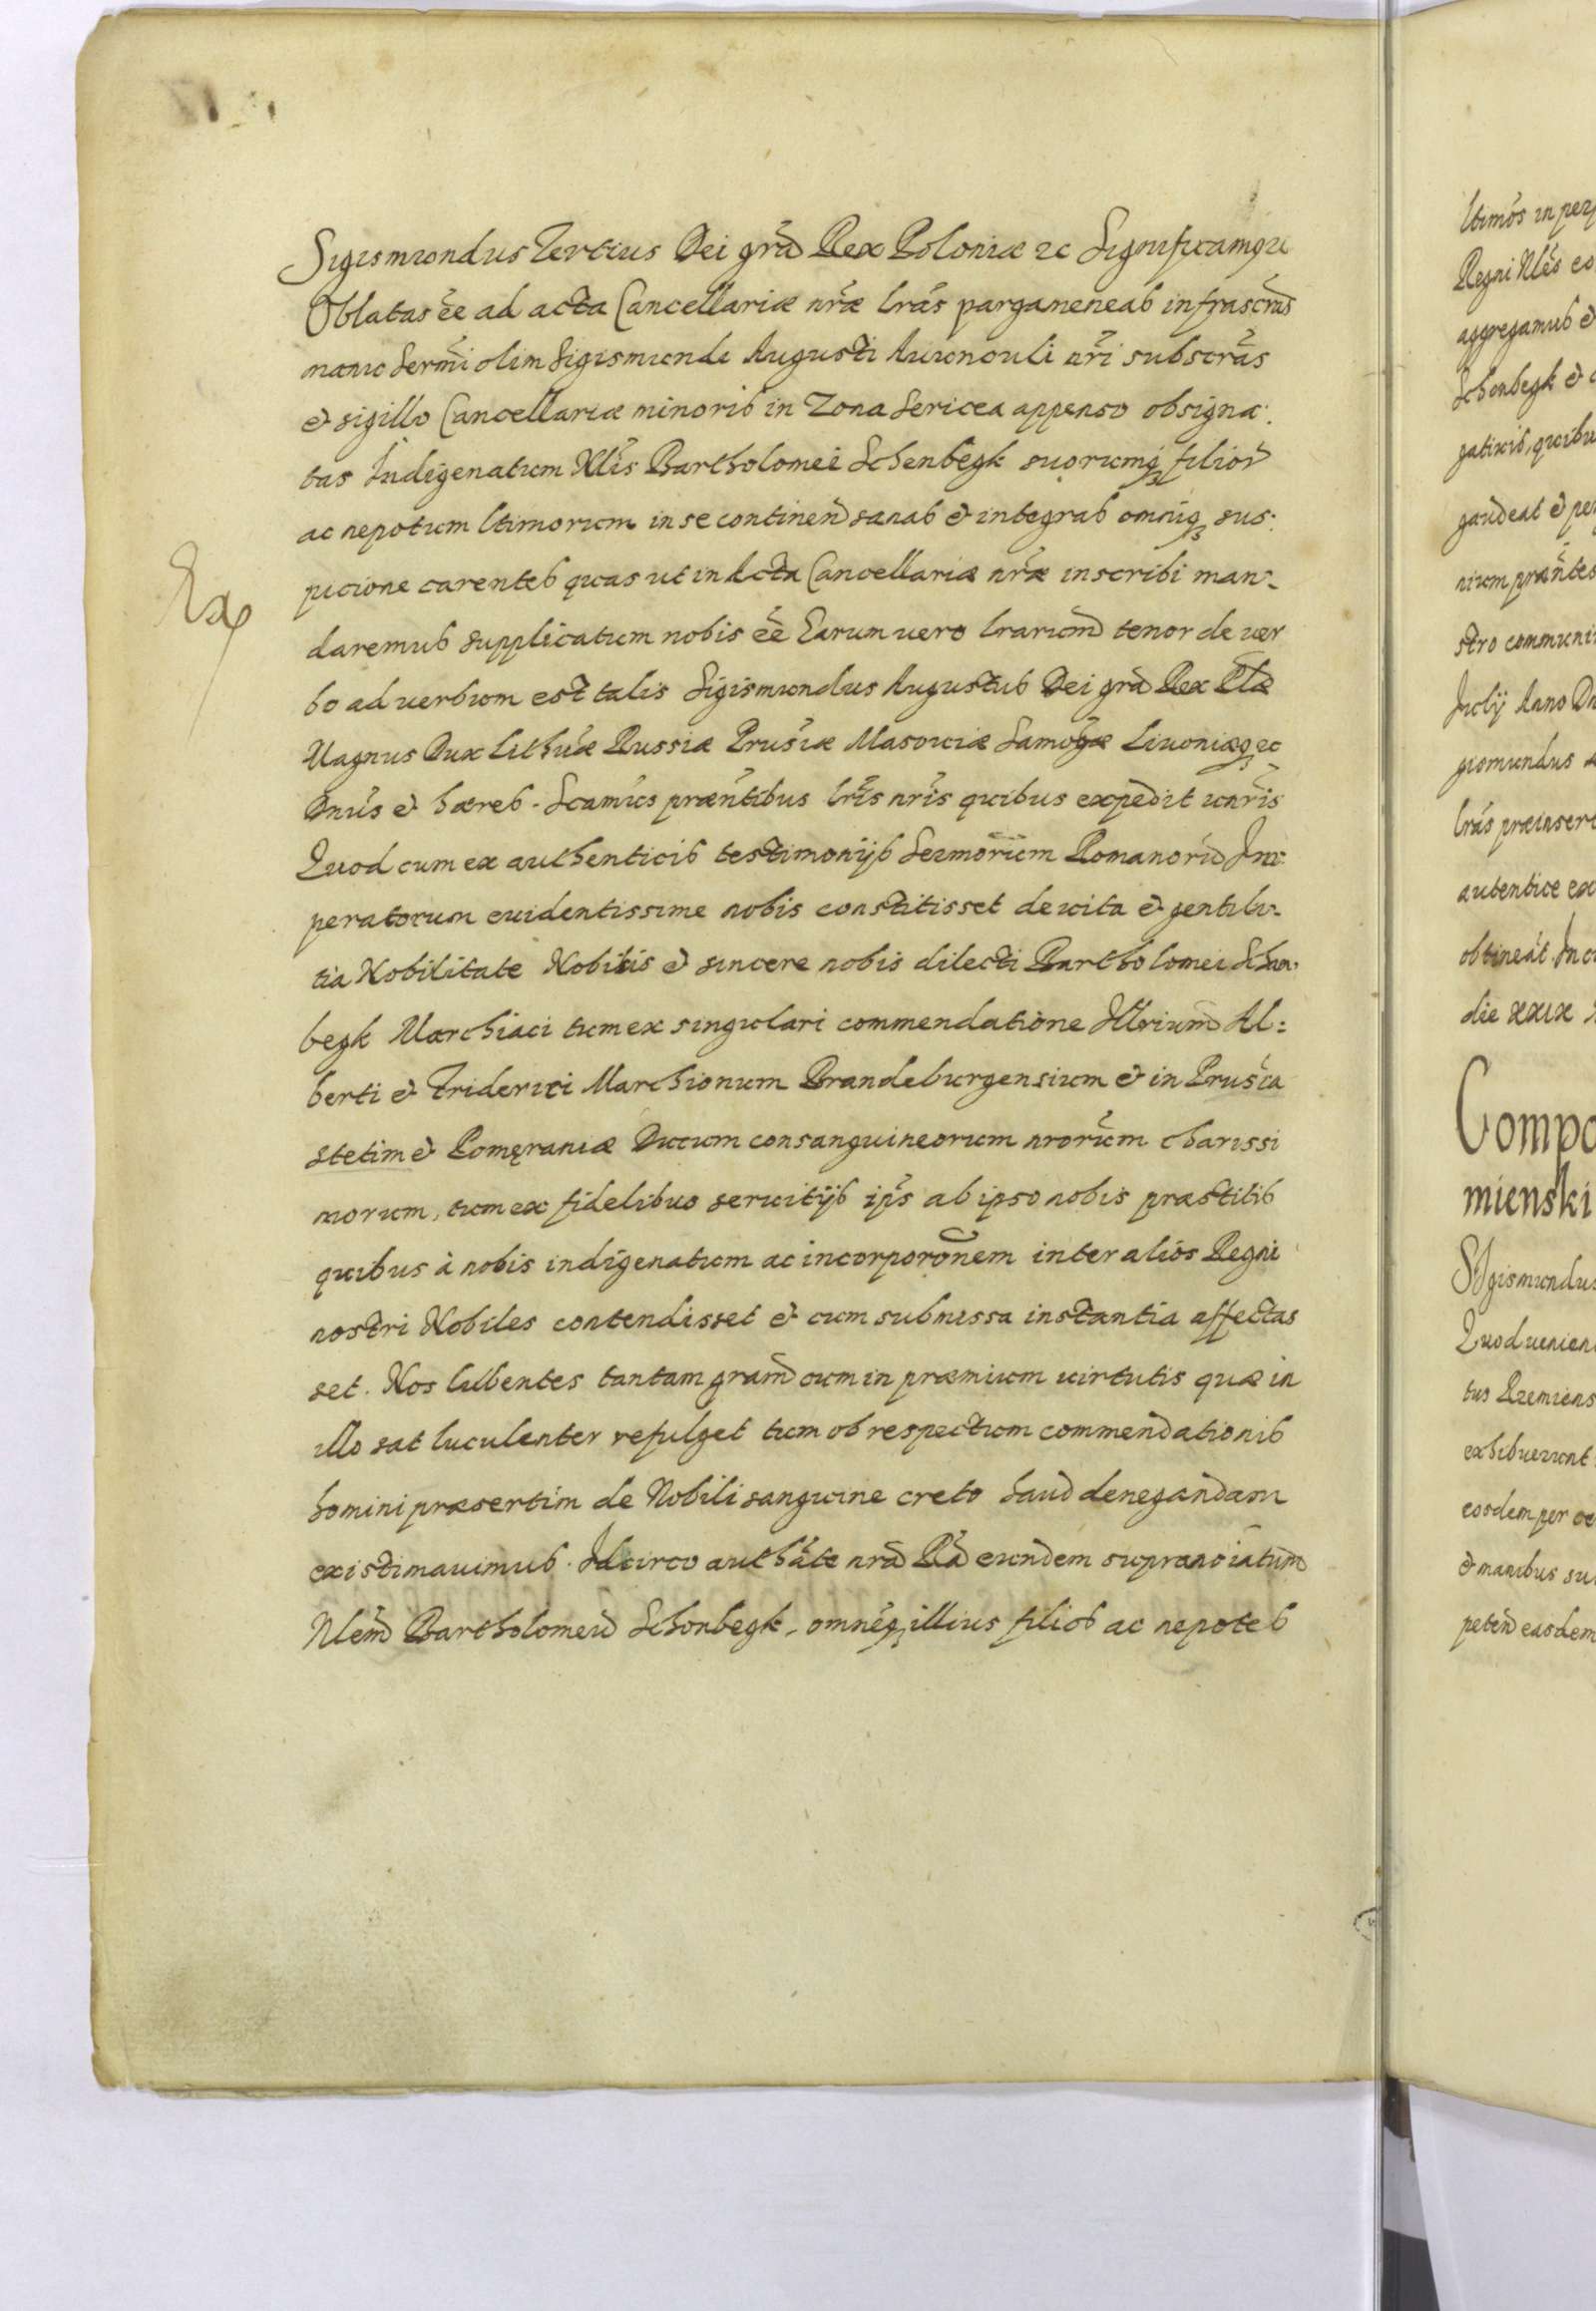 Sigismundus Tertius Dei grã Rex Poloniæ ꝛc Significamqꝫ
Oblatas ẽe ad acta Cancellariæ nr̃æ lrãs pargameneas infrascrãs
manu Sermi olim Sigismundi Augusti Auunculi nr̃i subscrãs
& sigillo Cancellariæ minoris in Zona Sericea appenso obsigna:
tas Indigenatum Nlis Bartholomei Schenbegk suorumqꝫ filior̃
ac nepotum ltimorum in se continen̄ sanas & integras omniqꝫ sus:
picione carentes quas ut in Acta Cancellariæ nr̃æ inscribi man-
daremus supplicatum nobis ẽe Earum uero lrarum̃ tenor de uer
bo ad uerbum est talis Sigismundus Augustus Dei grã Rex Plæ
Magnus Dux Lithuæ Russiæ Prusiæ Masouiæ Samogæ Liuoniæqꝫ ꝛc
Dnũs & hæres. Scamũs præñtibus lrĩs nrĩs quibus expedit unrĩs
Quod cum ex authenticis testimonijs Sermorum Romanorũ Im:
peratorum euidentissime nobis constitisset de uita & gentili-
tia Nobilitate Nobilis & sincere nobis dilecti Bartholomei Schan-
begk Marchiaci tum ex singulari commendatione Illrium̃ Al:
berti & Friderici Marchionum Brandeburgensium & in Prusia
Stetim & Pomeraniæ Ducum consanguineorum nrorum charissi
morum, tum ex fidelibus seruitijs ip̃s ab ipso nobis præstitis
quibus à nobis indigenatum ac incorporõnem inter alios Regni
nostri Nobiles contendisset & cum submissa instantia affectas
set. Nos lubentes tantam gram̃ cum in præmium uirtutis quæ in
illo sat luculenter refulget tum ob respectum commendationis
homini præsertim de Nobili sanguine creto haud denegandam
existimauimus. Idcirco authãte nrã Rã eundem supranoĩatum̃
Nlem̃ Bartholomeũ Schonbegk, omnesqꝫ illius filios ac nepotes
Ex
ltimos in perp
Regni Nles eo
aggregamus &
Schonbegk &
gatiuis, quibu
gaudeat & per
nium præñtes
stro communi
Julij Anno Dn
gismundus A
lrãs præinsert
autentice ex
obtineãt. In c
die XXIX
Compo
mienski
Sigismundus
Quod uenien
tus Rzemiens
exhibuerunt
eosdem per oe
& manibus su
peten̄ easdem